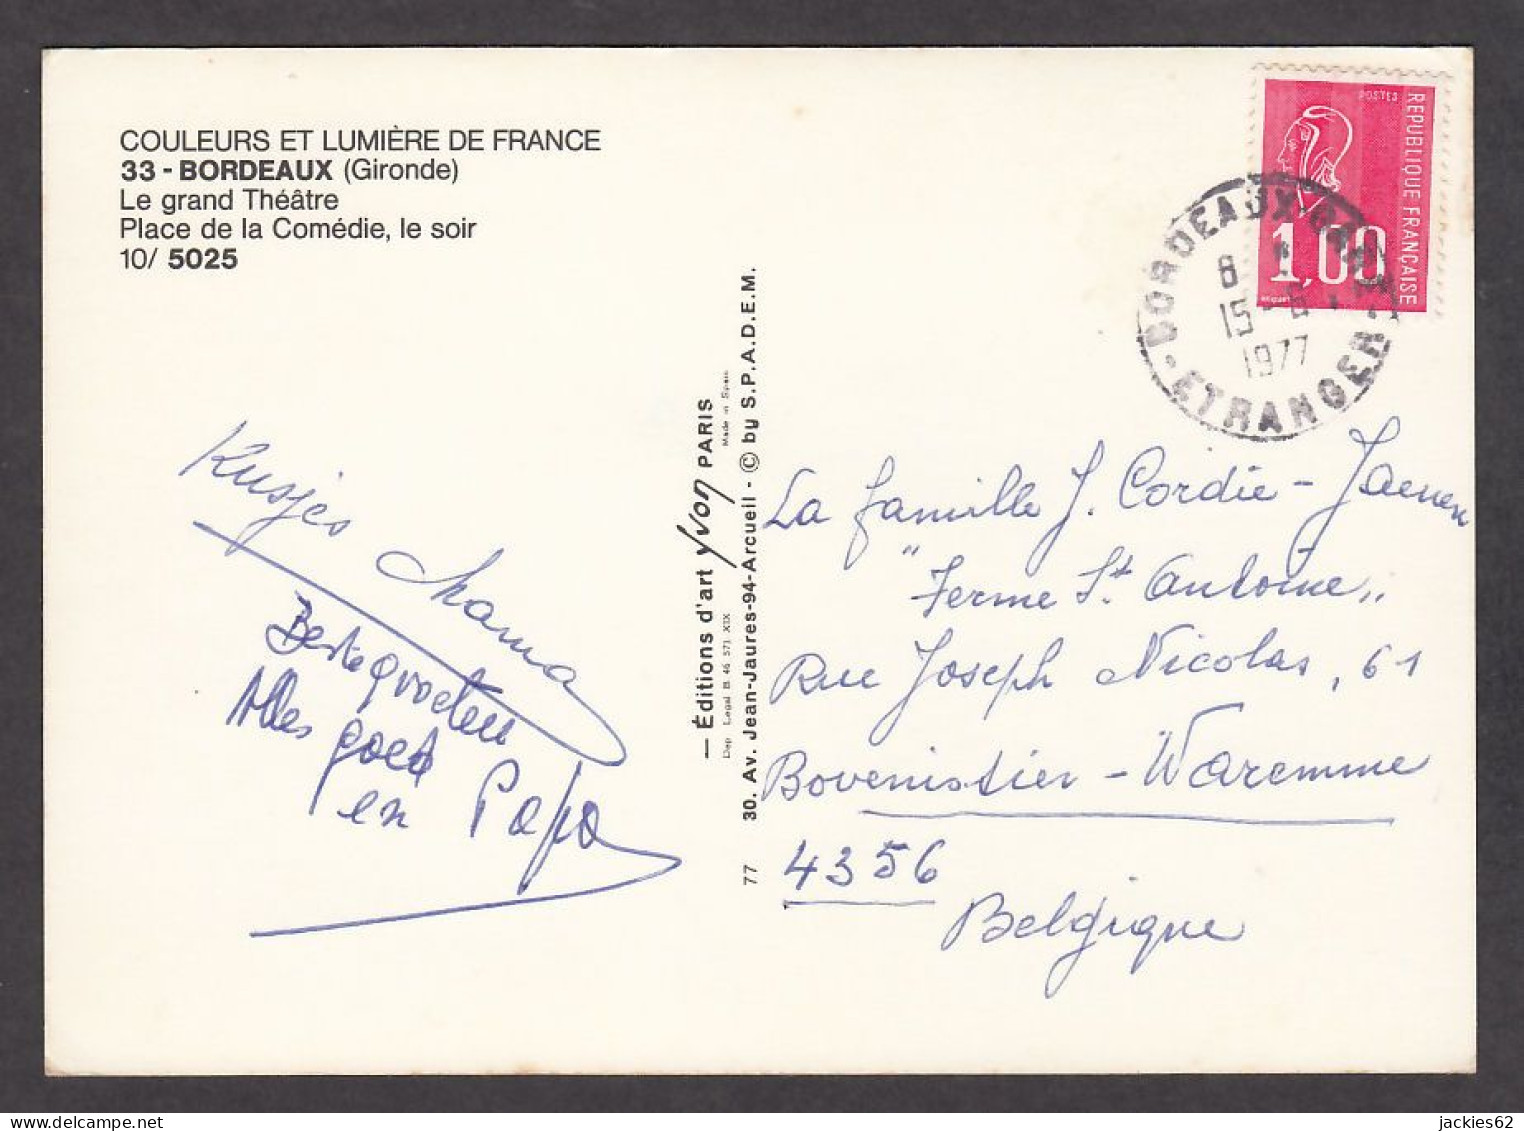 COULEURS ET LUMIÈRE DE FRANCE
33 - BORDEAUX (Gironde)
Le grand Théâtre
Place de la Comédie, le soir
10/ 5025
POSTES
REPUBLIQUE FRANÇAISE
1,00
BORDEAUX GARE
8
15 - 6
1977
- ETRANGER -
Kusjes Mama
Beste groeten
Alles goed
en Papa
— Éditions d'art Yvon PARIS
Dép. Légal B. 46 571 XIX
Made in Spain
77 30. Av. Jean-Jaures-94-Arcueil - © by S.P.A.D.E.M.
La famille J. Cordie - Jaenen
"Ferme St. Antoine"
Rue Joseph Nicolas, 61
Bovenistier - Waremme
4356
Belgique
jackies62